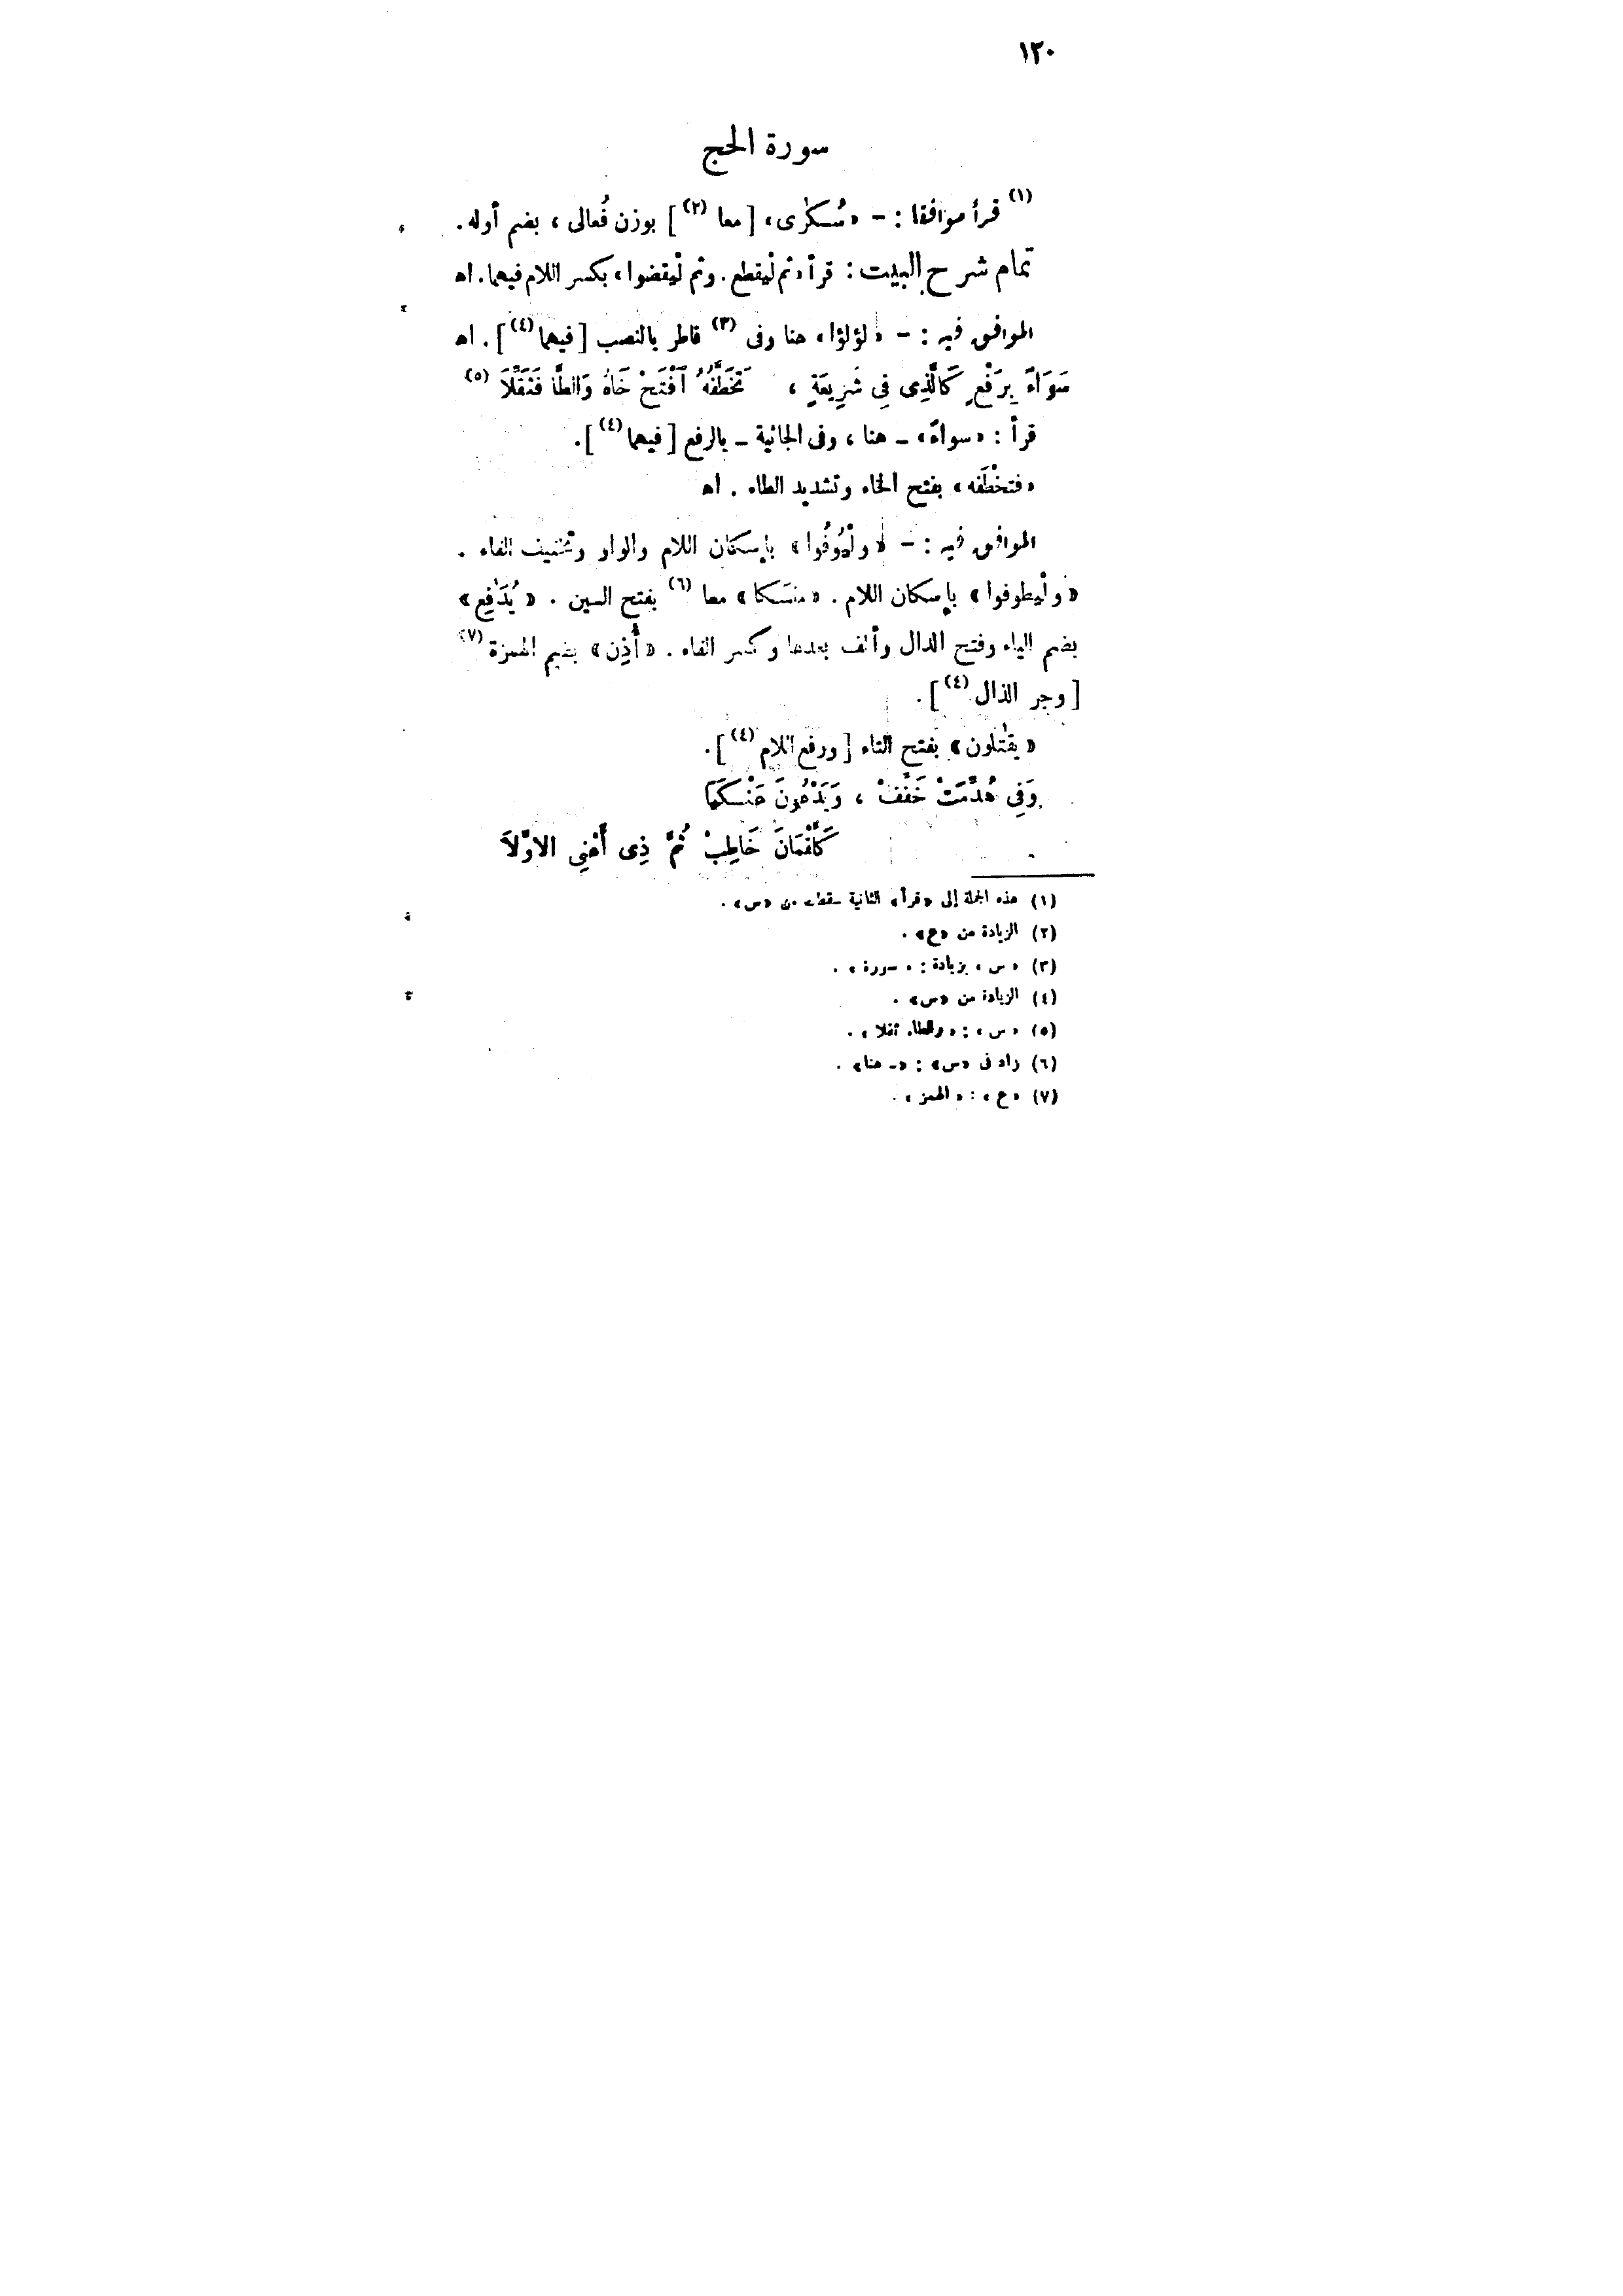 ١٢٠
سورة الحج
(١) قرأ موافقا : – «سُكٰرى» [معا (٢)] بوزن فُعالى ، بضم أوله .
تمام شرح البيت : قرأ «ثم لْيقطع . وثم لْيقضوا» بكسر اللام فيهما . اه
الموافق فيه : – «لؤلؤا» هنا وفى (٣) فاطر بالنصب [فيهما (٤)] . اه
سَوَاءً بِرَفْعٍ كَالَّذِى فِي شَرِيعَةٍ ، تَخَطَّفُهُ اَفْتَحْ خَاهُ وَالطَّا فَثَقِّلَا (٥)
قرأ : «سواءً» – هنا ، وفى الجاثية – بالرفع [فيهما (٤)] .
«فتخْطَفه» بفتح الخاء وتشديد الطاء . اه
الموافق فيه : – «ولْيُوفُوا» بإسكان اللام والواو وتخفيف الفاء .
«ولْيطوفوا» بإسكان اللام . «منسَكا» معا (٦) بفتح السين . «يُدَٰفِع»
بضم الياء وفتح الدال وألف بعدها وكسر الفاء . «أُذِن» بضم الهمزة (٧)
[وجر الذال (٤)] .
«يقٰتلون» بفتح التاء [ورفع اللام (٤)] .
وَفِى هُدِّمَتْ خَفِّفْ ، وَيَدْعُونَ عَنْكَمَا
كَلُقْمَانَ خَاطِبْ ثُمَّ ذِى أَعْنِي الاوَّلَا
(١) هذه الجملة إلى «قرأ» الثانية سقطت من «س» .
(٢) الزيادة من «ع» .
(٣) «س» بزيادة : «سورة» .
(٤) الزيادة من «س» .
(٥) «س» : «والطاء ثقلا» .
(٦) زاد فى «س» : «– هنا» .
(٧) «ع» : «الهمز» .